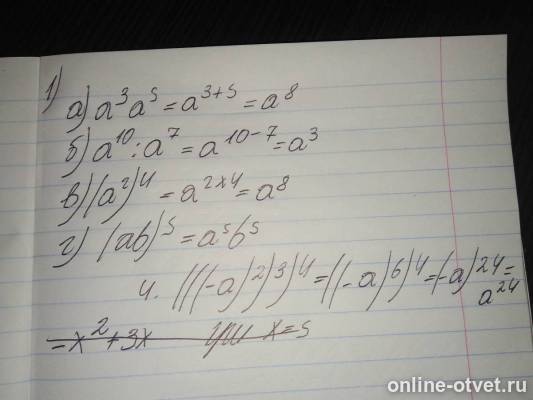 1)
а) a³a⁵ = a³⁺⁵ = a⁸
б) a¹⁰ : a⁷ = a¹⁰⁻⁷ = a³
в) (a²)⁴ = a²ˣ⁴ = a⁸
г) (ab)⁵ = a⁵b⁵
4. (((-a)²)³)⁴ = ((-a)⁶)⁴ = (-a)²⁴ =
a²⁴
= x² + 3x при x = 5
online-otvet.ru